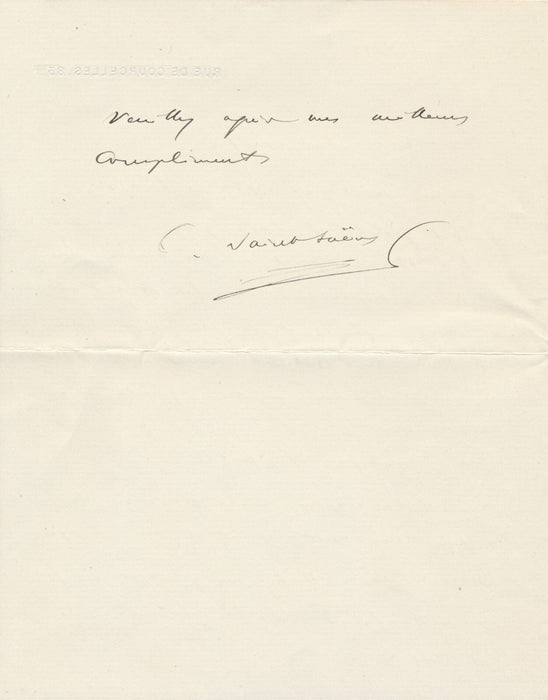 RUE DE COURCELLES, 83 bis
Veuillez agréer mes meilleurs
Compliments
C. Saint-Saëns